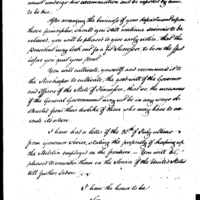 must undergo his examination and be reported by time
to be true.
After arranging the business of your department upon
these principles, should you still continue desirous to be
relieved, you will be pleased to give early notice, that the
President may look out for a Successor, to be on the spot
before you quit your post.
You will cultivate yourself and recommend it to
the Storekeeper to cultivate, the good will of the Governor
and Officers of the State of Tennessee, that so, the measures
of the General Government may not be in any ways ob-
structed from their disgust to those who may have to ex-
ecute its orders.
I have had a letter of the 20th of July ultimo
from Governor Sevier, stating the propriety of keeping up
the Militia employed on the frontiers — You will be
pleased to consider them in the Service of the United States
till further orders.
I have the honor to be
Sir